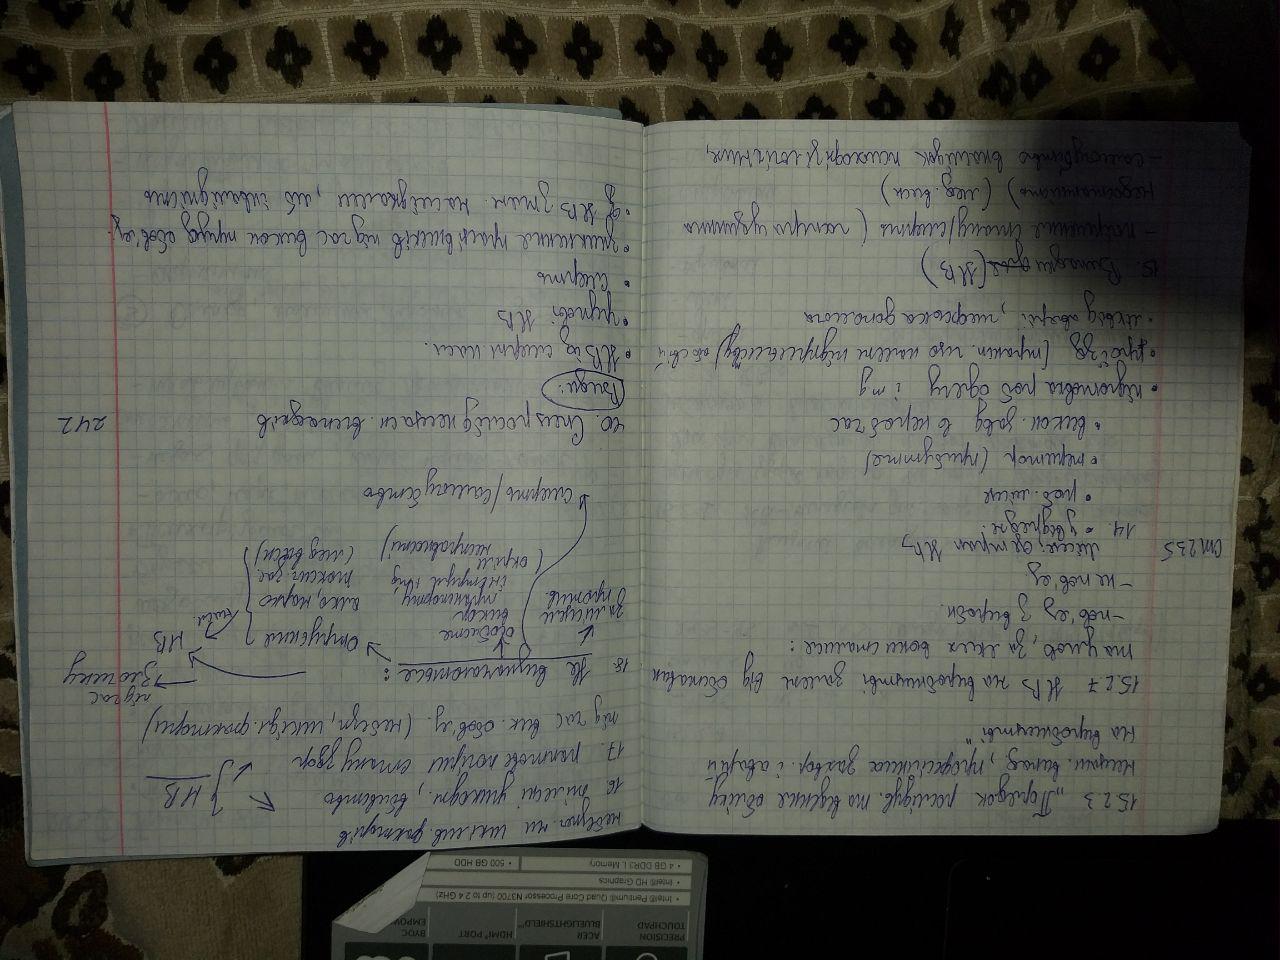 PRECISION
TOUCHPAD
ACER
BLUELIGHTSHIELD™
HDMI® PORT
BYOC
EMPOW
• Intel® Pentium® Quad Core Processor N3700 (up to 2.4 GHz)
• Intel® HD Graphics
• 4 GB DDR3 L Memory
• 500 GB HDD
15.2.3 „Порядок розслідув. та ведення обліку
нещасн. випад, професійних захвор. і аварій
на виробництві"
15.2.7 НВ на виробництві залеж від обставин
та умов, за яких вони сталися:
- пов'яз з виробн.
- не пов'яз.
ст 235
Місце, де трап. НВ,
14. • у відрядж.
• роб. місце
• територ (прибуття)
• викон. завд в неробчас
• підготовка роб одягу і т д
• проїзд (трансп. що належ підприємству) або свій
• ліквід аварії, шефська допомога
15. Випадки (НВ)
- погіршення стану/смерть (гостра серцева
недостатність) (мед. висн)
- самогубство внаслідок психофізіологічних,
небезпеч. чи шкідлив. факторів
16. тілесні ушкодж., вбивство
} НВ
17. раптове погірш стану здор
під час вик. обов'яз. (небезп, шкідл. фактори)
18. Не визначаються:
під час
злочину
НВ
за місцем
прожив.
особисте
викор
транспорту,
інструм і тд
(окрім
несправності)
отруєння
алко, нарко
токсич. зас.
(мед висн)
насл.
смерть/самогубство
40. Спец розслід нещасн. випадків
242
Види:
• НВ із смерт. насл.
• групові НВ
• смерть
• зникнення працівників під час викон труд обов'яз.
• НВ з тяж. наслідками, мб інвалідність